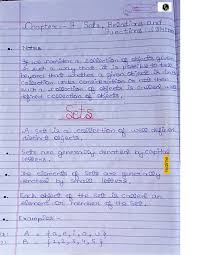 Chapter - 1 Sets, Relations and
Functions
Notes
If we consider a collection of objects given
in such a way that it is possible to tell
beyond that whether a given object is in the
collection under consideration or not then
such a collection of objects is called well
defined collection of objects.
Sets
A set is a collection of well defined
distinct objects.
Sets are generally denoted by capital
letters.
The elements of sets are generally
denoted by small letters.
Each object of the set is called an
element or member of the set.
Examples -
A = {a, e, i, o, u}
B = {1, 2, 3, 4, 5}